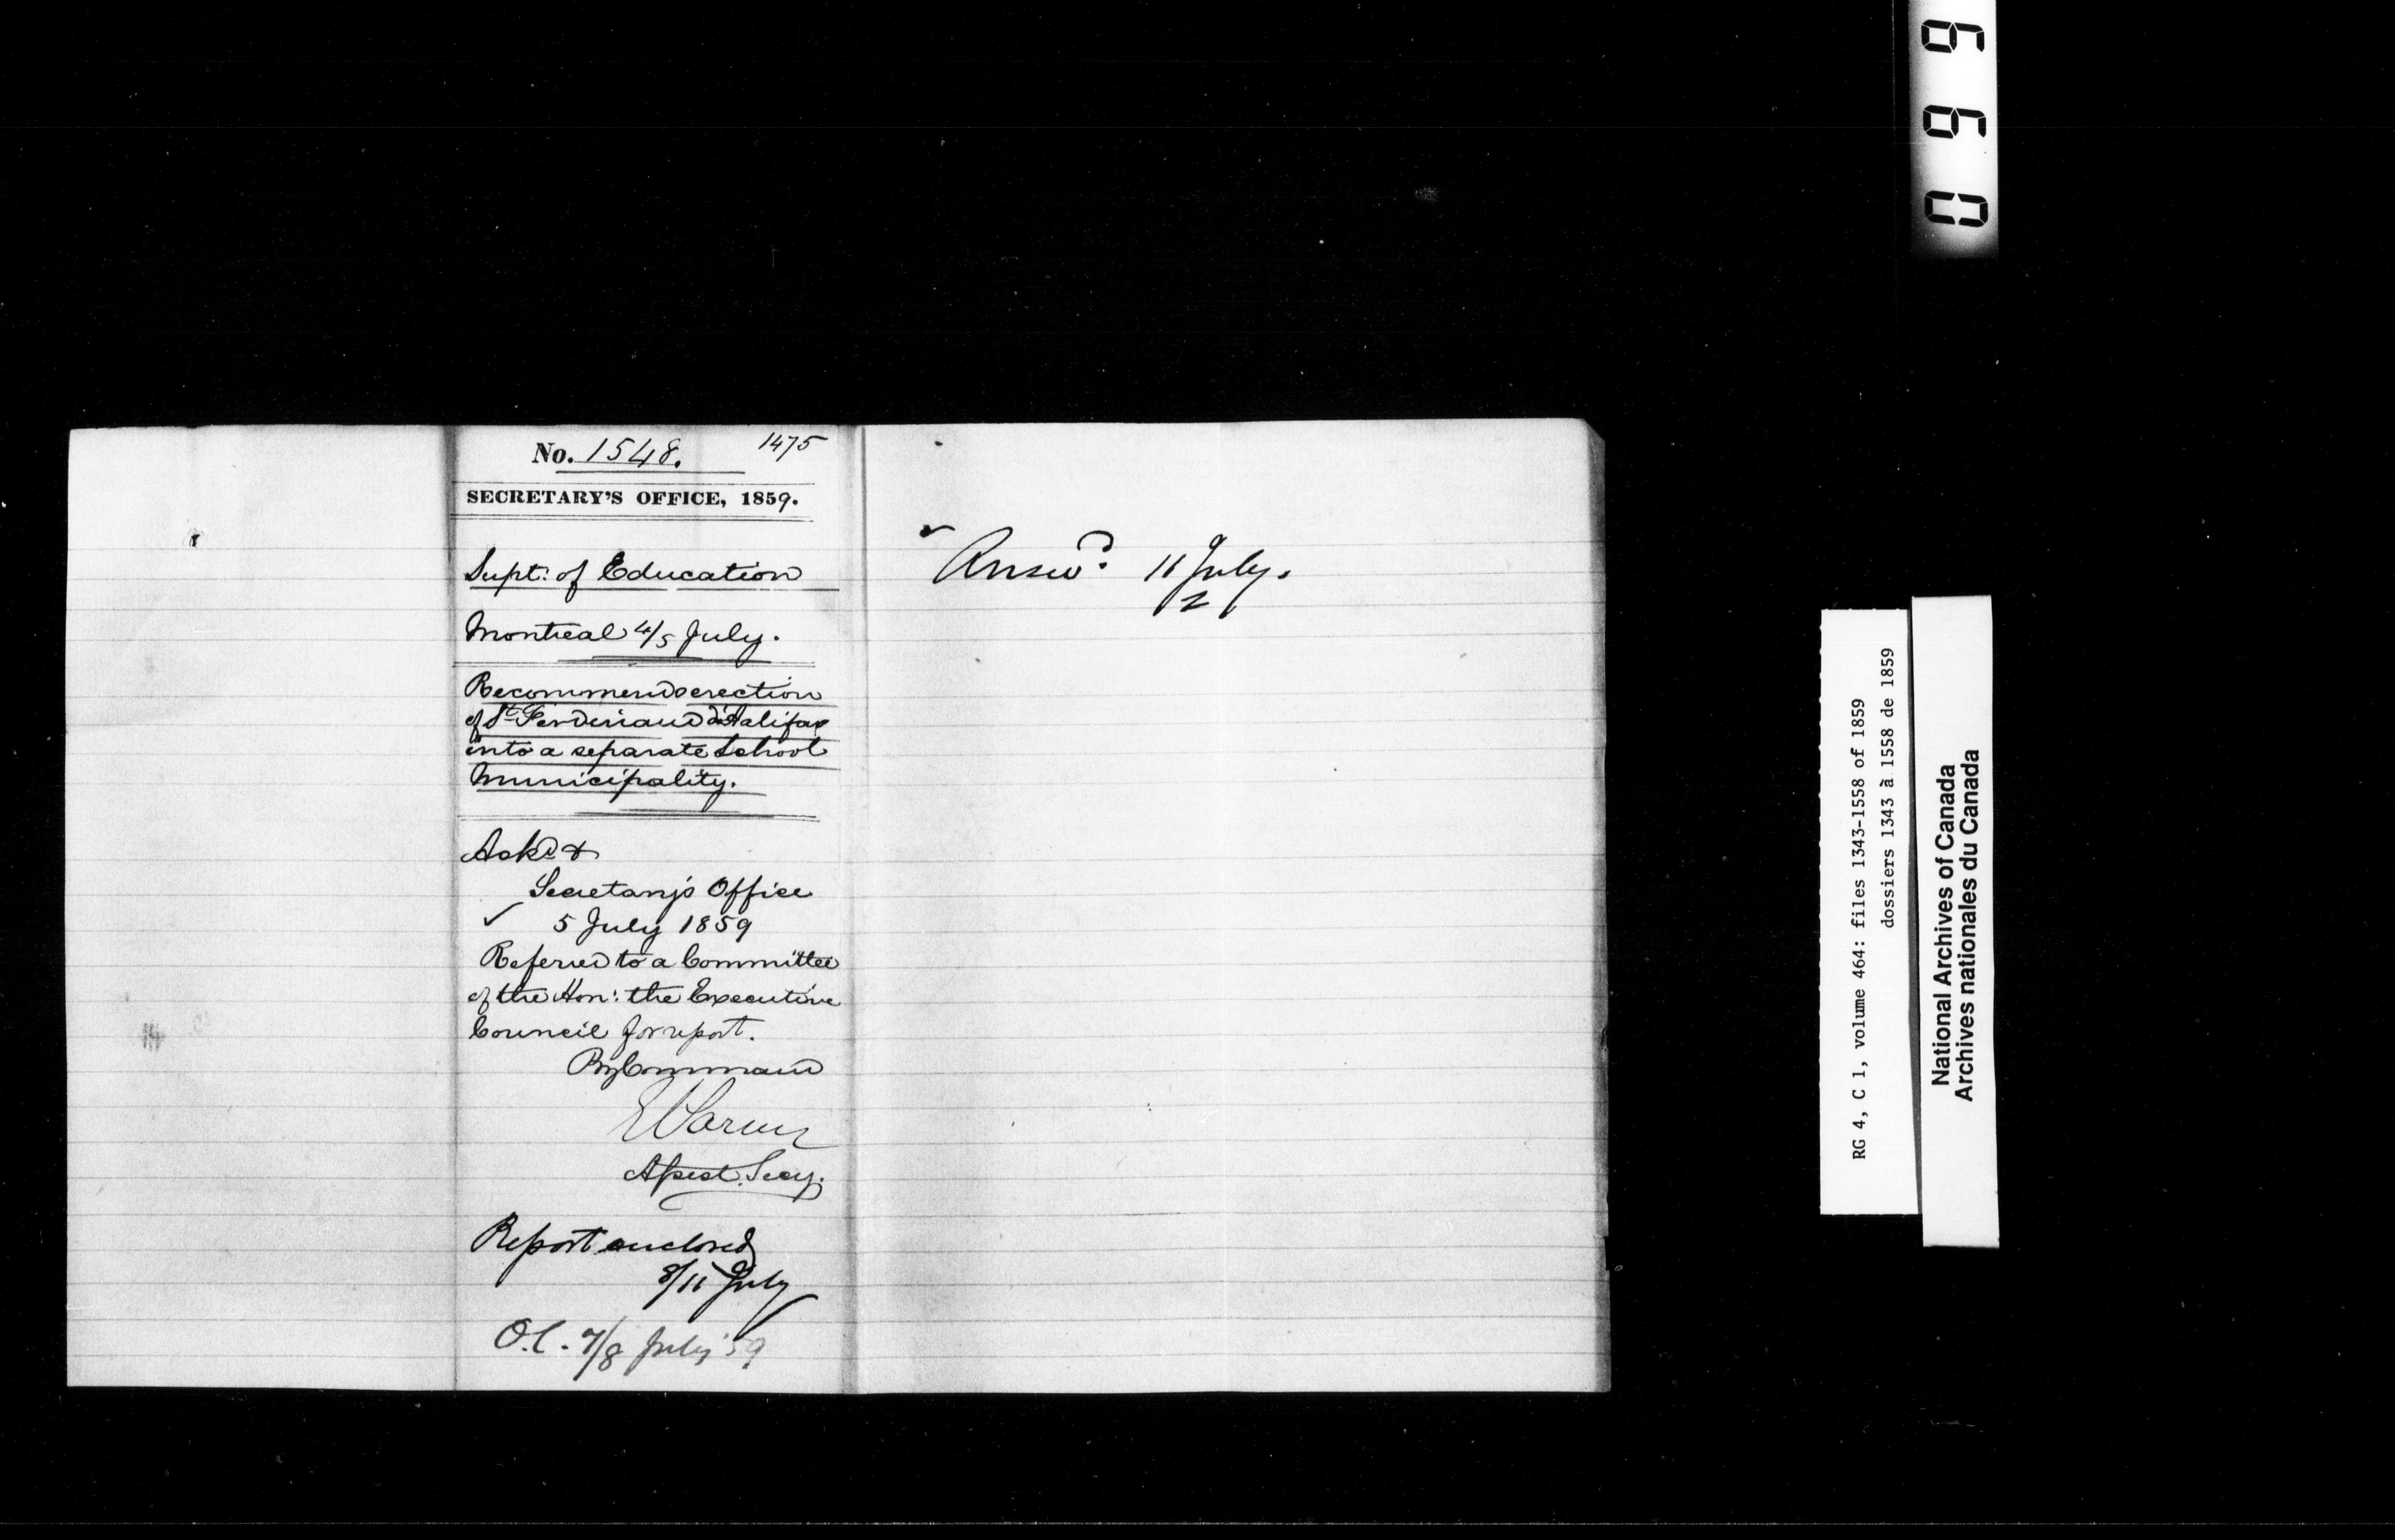 No. 1548. 1475
SECRETARY'S OFFICE, 1859.
Supt: of Education
Montreal 4/5 July.
Recommends erection
of St. Ferdinand d'Halifax
into a separate School
Municipality.
Ackd &
Secretary's Office
✓ 5 July 1859
Referred to a Committee
of the Hon: the Executive
Council for report.
By Command
Assist. Secy.
Report enclosed
8/11 July
O.C. 7/8 July '59
Answd. 11 July.
2
0 6 6
RG 4, C 1, volume 464: files 1343-1558 of 1859
dossiers 1343 à 1558 de 1859
National Archives of Canada
Archives nationales du Canada